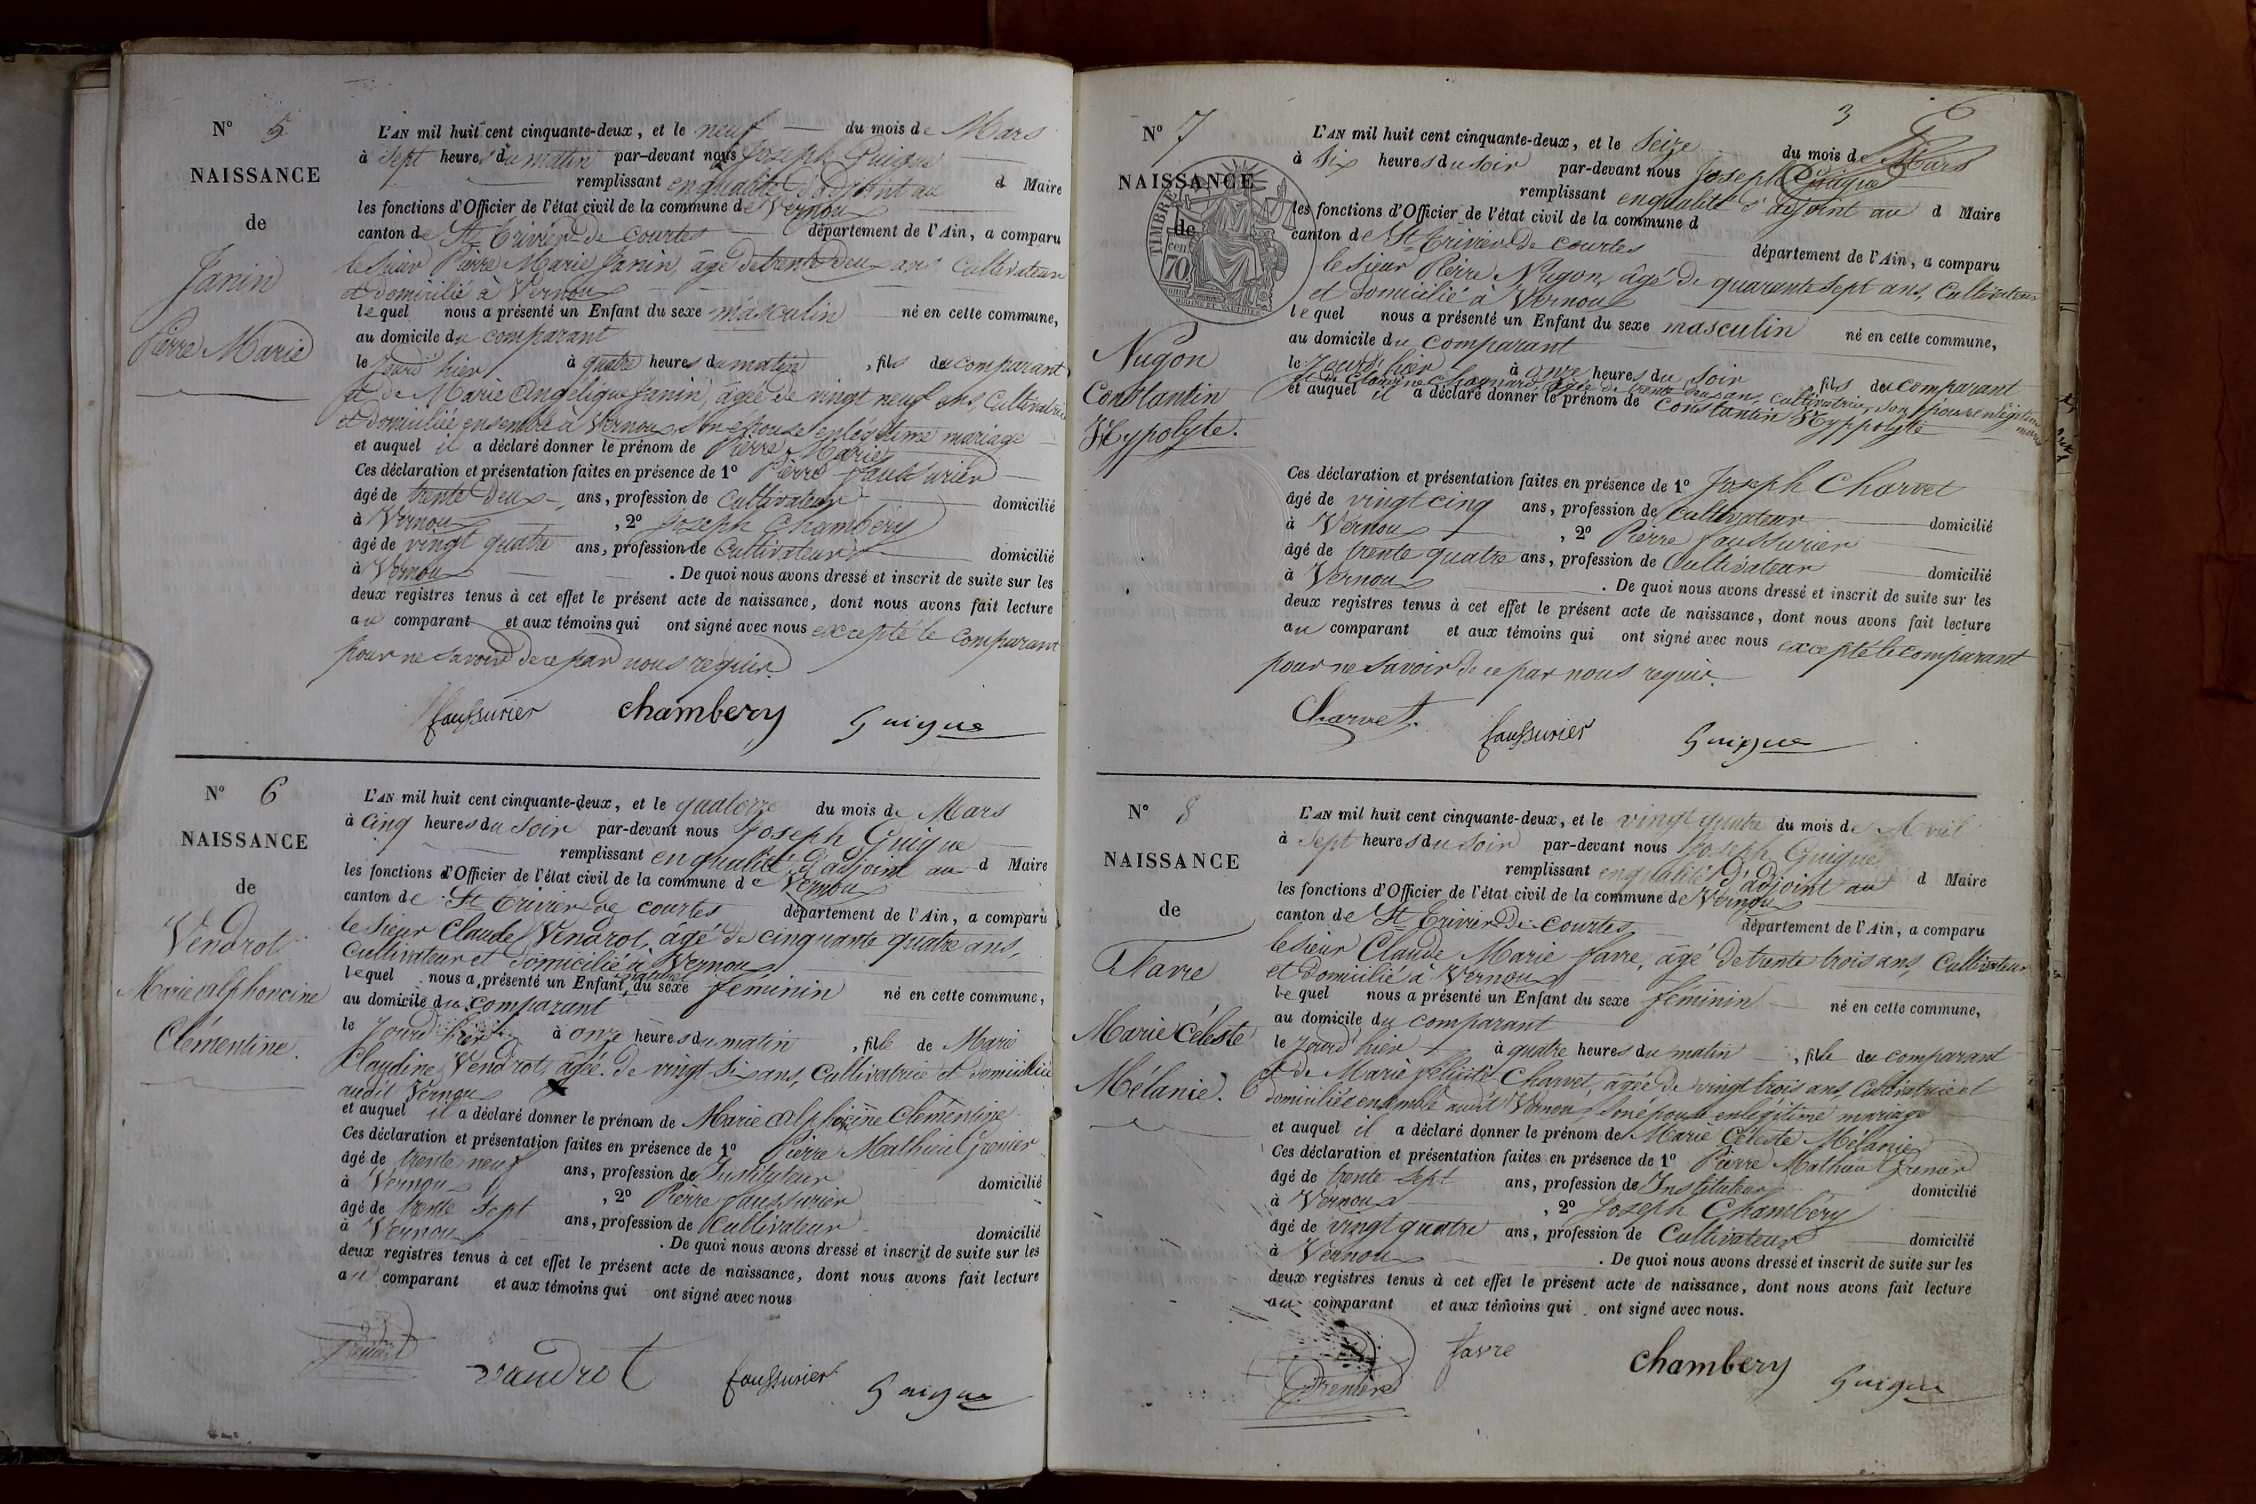 N° 5
NAISSANCE
de
Janin
Pierre Marie
L'AN mil huit cent cinquante-deux, et le neuf du mois de Mars
à Sept heures du matin par-devant nous Joseph Guigue
remplissant en qualité d'adjoint au d Maire
les fonctions d'Officier de l'état civil de la commune de Vernoux
canton de St Trivier de Courtes département de l'Ain, a comparu
le sieur Pierre Marie Janin, âgé de trente deux ans, Cultivateur
et domicilié à Vernoux
lequel nous a présenté un Enfant du sexe masculin né en cette commune,
au domicile du comparant
le jourd'hier à quatre heures du matin, fils du comparant
et de Marie Angélique Janin, âgée de vingt neuf ans, Cultivatrice
et domiciliée ensemble à Vernoux, son epouse en legitime mariage
et auquel il a déclaré donner le prénom de Pierre Marie
Ces déclaration et présentation faites en présence de 1° Pierre faussurier
âgé de trente deux ans, profession de Cultivateur domicilié
à Vernoux, 2° Joseph Chambery
âgé de vingt quatre ans, profession de Cultivateur domicilié
à Vernoux. De quoi nous avons dressé et inscrit de suite sur les
deux registres tenus à cet effet le présent acte de naissance, dont nous avons fait lecture
au comparant et aux témoins qui ont signé avec nous excepté le comparant
pour ne savoir de ce par nous requis.
faussurier chambery Guigue
N° 6
NAISSANCE
de
Vendrot
Marie alphoncine
Clémentine.
L'AN mil huit cent cinquante-deux, et le quatorze du mois de Mars
à Cinq heures du soir par-devant nous Joseph Guigue
remplissant en qualité d'adjoint au d Maire
les fonctions d'Officier de l'état civil de la commune de Vernoux
canton de St Trivier de courtes département de l'Ain, a comparu
le sieur Claude Vendrot, âgé de cinquante quatre ans,
Cultivateur et domicilié à Vernoux
lequel nous a présenté un Enfant naturel du sexe féminin né en cette commune,
au domicile du comparant
le jourd'hier à onze heures du matin, fille de Marie
Claudine Vendrot, âgée de vingt six ans, Cultivatrice et domiciliée
audit Vernoux
et auquel il a déclaré donner le prénom de Marie alphoncine Clémentine
Ces déclaration et présentation faites en présence de 1° Pierre Mathieu Grenier
âgé de trente neuf ans, profession de Instituteur domicilié
à Vernoux, 2° Pierre faussurier
âgé de trente sept ans, profession de Cultivateur domicilié
à Vernoux. De quoi nous avons dressé et inscrit de suite sur les
deux registres tenus à cet effet le présent acte de naissance, dont nous avons fait lecture
au comparant et aux témoins qui ont signé avec nous
vandrot faussurier Guigue
3
N° 7
NAISSANCE
de
TIMBRE
cen
70
Nugon
Constantin
Hypolyte.
L'AN mil huit cent cinquante-deux, et le Seize du mois de Mars
à Six heures du soir par-devant nous Joseph Guigue
remplissant en qualité d'adjoint au d Maire
les fonctions d'Officier de l'état civil de la commune d
canton de St Trivier de courtes département de l'Ain, a comparu
le sieur Pierre Nugon, âgé de quarante sept ans, Cultivateur
et domicilié à Vernoux
lequel nous a présenté un Enfant du sexe masculin né en cette commune,
au domicile du comparant
le jourd'hier à onze heures du soir, fils du comparant
et de Claudine Charnard, âgée de trente deux ans, cultivatrice, son épouse en légitime mariage
et auquel il a déclaré donner le prénom de Constantin Hyppolyte
Ces déclaration et présentation faites en présence de 1° Joseph Charvet
âgé de vingt cinq ans, profession de Cultivateur domicilié
à Vernoux, 2° Pierre faussurier
âgé de trente quatre ans, profession de Cultivateur domicilié
à Vernoux. De quoi nous avons dressé et inscrit de suite sur les
deux registres tenus à cet effet le présent acte de naissance, dont nous avons fait lecture
au comparant et aux témoins qui ont signé avec nous excepté le comparant
pour ne savoir de ce par nous requis.
Charvet. faussurier Guigue
N° 8
NAISSANCE
de
Favre
Marie Céleste
Mélanie.
L'AN mil huit cent cinquante-deux, et le vingt quatre du mois de Avril
à Sept heures du soir par-devant nous Joseph Guigue
remplissant en qualité d'adjoint au d Maire
les fonctions d'Officier de l'état civil de la commune de Vernoux
canton de St Trivier de courtes département de l'Ain, a comparu
le sieur Claude Marie favre, âgé de trente trois ans, Cultivateur
et domicilié à Vernoux
lequel nous a présenté un Enfant du sexe féminin né en cette commune,
au domicile du comparant
le jourd'hier à quatre heures du matin, fille du comparant
et de Marie félicité Charvet, âgée de vingt trois ans, Cultivatrice et
domiciliée ensemble audit Vernoux, son épouse en légitime mariage
et auquel il a déclaré donner le prénom de Marie Céleste Mélanie
Ces déclaration et présentation faites en présence de 1° Pierre Mathieu Grenier
âgé de trente sept ans, profession de Instituteur domicilié
à Vernoux, 2° Joseph Chambéry
âgé de vingt quatre ans, profession de Cultivateur domicilié
à Vernoux. De quoi nous avons dressé et inscrit de suite sur les
deux registres tenus à cet effet le présent acte de naissance, dont nous avons fait lecture
au comparant et aux témoins qui ont signé avec nous.
Grenier favre chambery Guigue